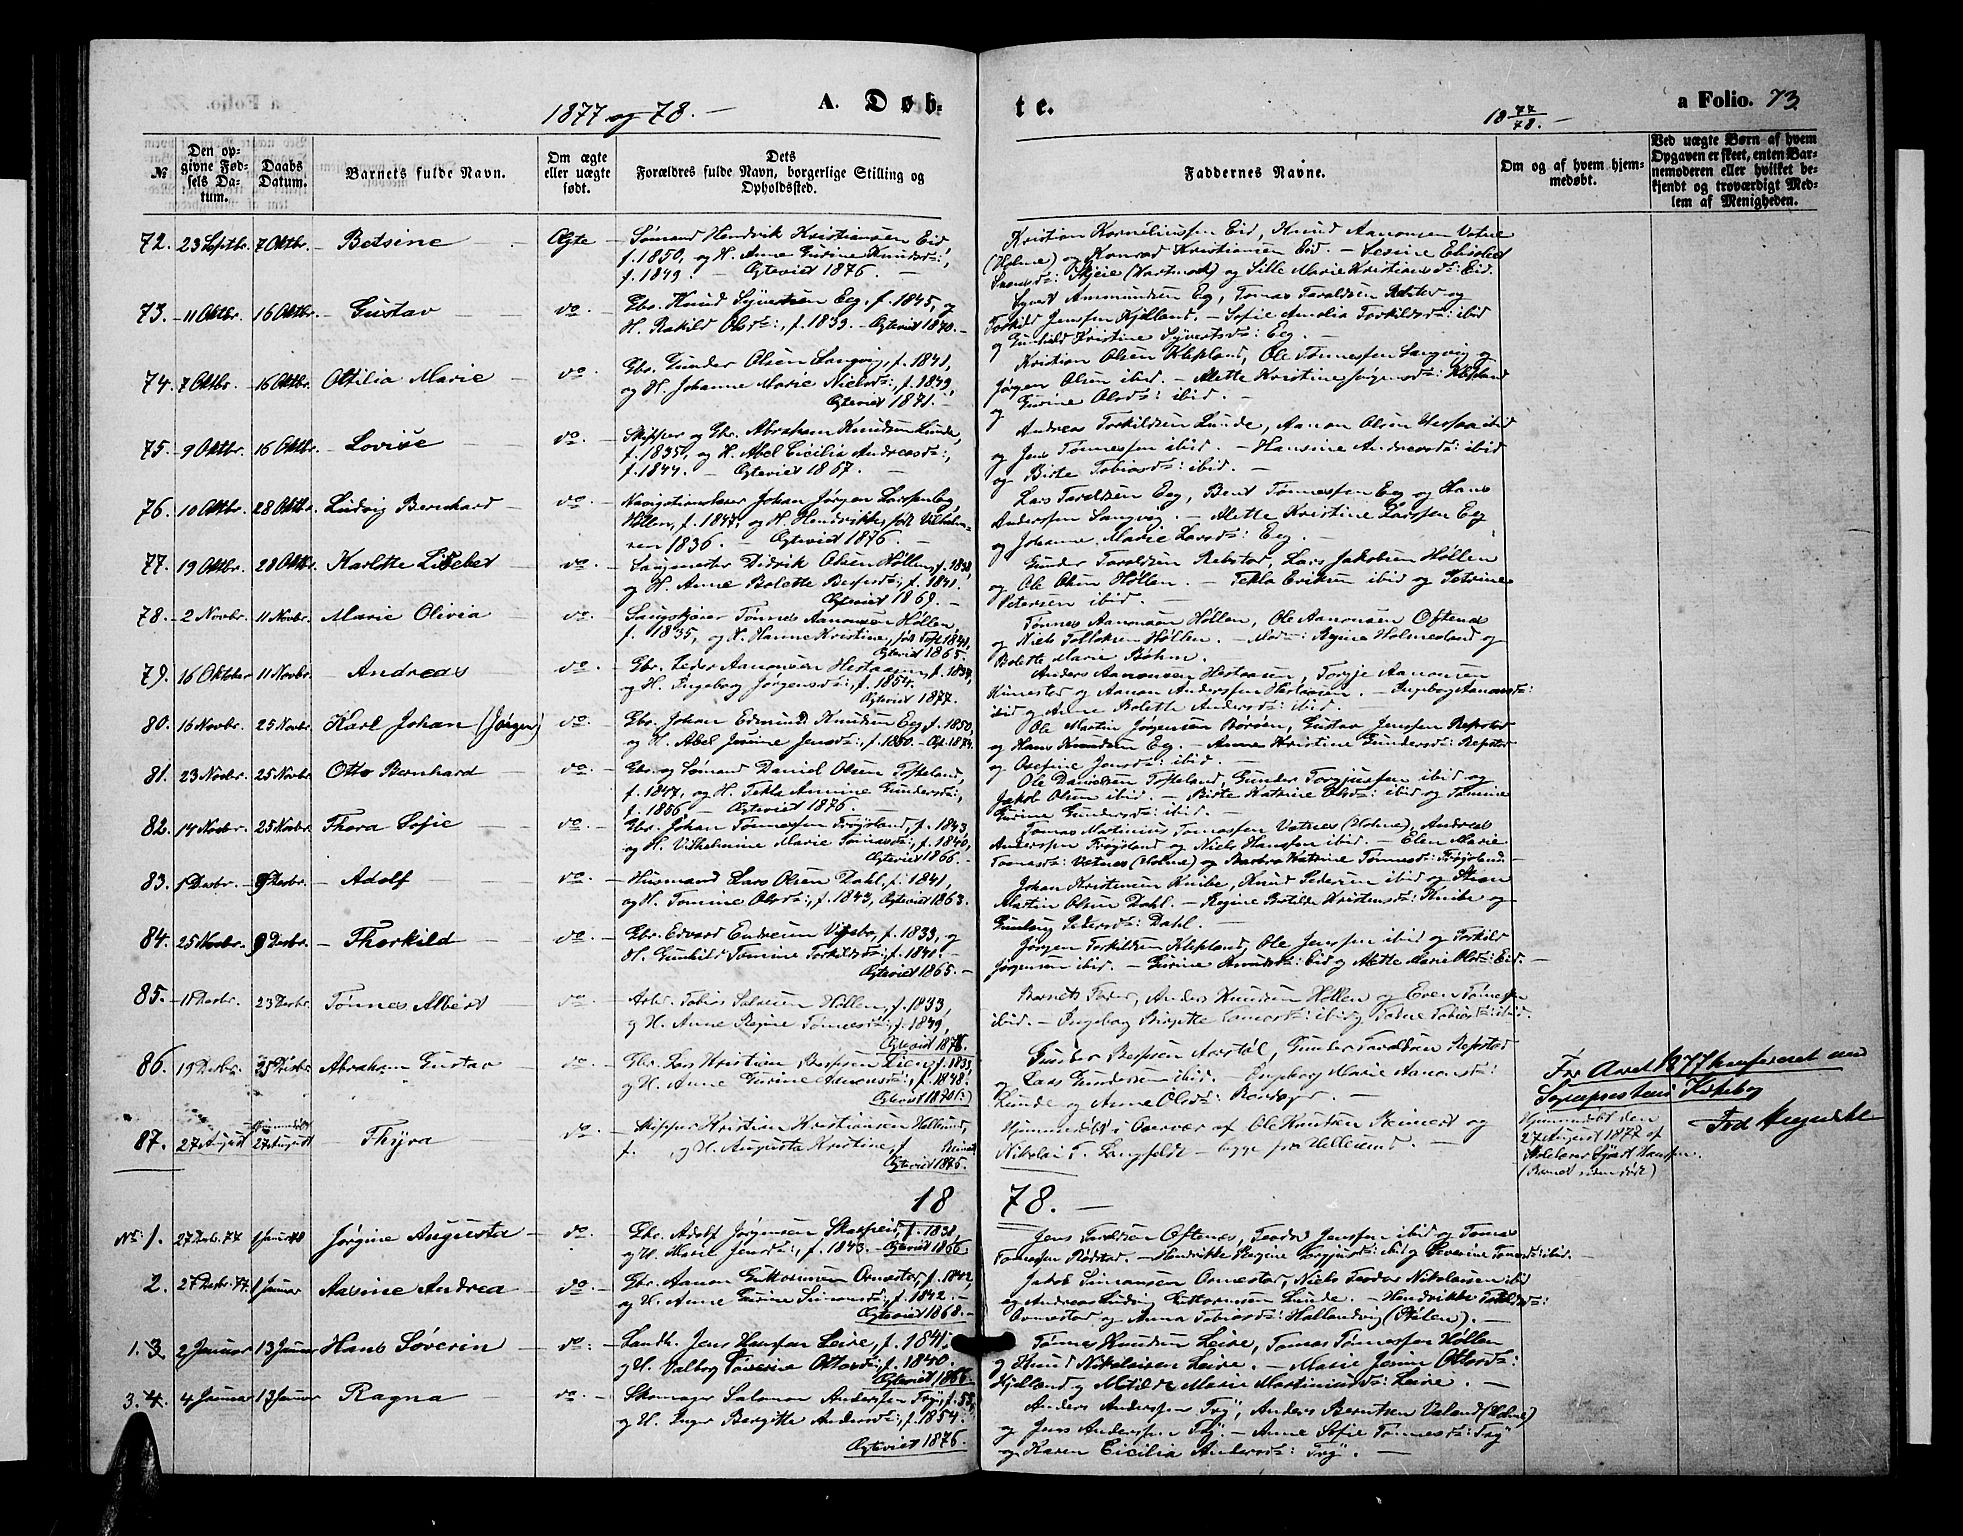 1877 og 78. —
A. Døb-
te.
18 77/78. —
a Folio. 73.
№
Den op-
givne Fød-
sels Da-
tum.
Daabs
Datum.
Barnets fulde Navn.
Om ægte
eller uægte
født.
Dets
Forældres fulde Navn, borgerlige Stilling og
Opholdssted.
Faddernes Navne.
Om og af hvem hjem-
medøbt.
Ved uægte Børn af hvem
Opgaven er skeet, enten Bar-
nemoderen eller hvilket be-
kjendt og troværdigt Med-
lem af Menigheden.
72. 23 Septbr. 7 Oktbr. Betsine Ægte
Sømand Hendrik Kristiansen Eid
f. 1850, og H. Anne Gurine Knudsd:,
f. 1849 — Ægteviet 1876. —
Kristian Korneliussen Eid, Knud Aanonsen Vatne
(Holme) og Konrad Kristiansen Eid. —
og Sille Marie Kristiansd: Eid.
73. 11 Oktbr. 16 Oktbr. Gustav do
Gbr. Knud Syvertsen Eeg. f. 1845, og
H. Rakild Olsd:, f. 1839 — Ægteviet 1870. —
Syvert Ammundsen Eeg, Tomas Taraldsen Rebstad og
Torkild Jenssen Kjelland. — Sofie Amalia Torkildsd: ibid
og Gunhild Kristine Syvertsd: Eeg. —
74. 7 Oktbr. 16 Oktbr. Ottilia Marie — do
Gbr. Gunder Olsen Langvig, f. 1841,
og H. Johanne Marie Nielsd:, f. 1849,
Ægteviet 1871. —
Kristian Olsen Klepland, Ole Tønnessen Langvig og
Jørgen Olsen ibid. — Mette Kristine Jørgensd: Klepland
og Gurine Olsd: ibid. —
75. 9 Oktbr. 16 Oktbr. Lovise — do
Skipper og Gbr. Abraham Knudsen Lunde,
f. 1835, og H. Abel Cicilia Andreasd:,
f. 1844. — Ægteviet 1867. —
Andreas Torkildsen Lunde, Aanon Olsen ibid
og Jens Tønnessen ibid. — Hansine Andreasd: ibid
og Birte Tobiasd: ibid. —
76. 10 Oktbr. 28 Oktbr. Ludvig Bernhard — do
Navigationslærer Johan Jørgen Larssen Eeg
Høllen, f. 1847, og H. Hendrikke født Vilhelm-
sen 1836. — Ægteviet 1876. —
Lars Taraldsen Eeg, Bent Tønnessen Eeg og Hans
Anderssen Langvig. — Mette Kristine Larssen Eeg
og Johanne Marie Larsd: Eeg. —
77. 19 Oktbr. 28 Oktbr. Karlotte Lisebet do
Didrik Olsen Høllen, f. 1838,
og H. Anne Bolette f. 1841.
Ægteviet 1869. —
Gunder Taraldsen Rebstad, Lars Jakobsen Høllen
og Ole Olsen Høllen. — Tekla Eriksen ibid og Petrine
Petersen ibid. —
78. 2 Novbr. 11 Novbr. Marie Olivia do
Tønnes Aanonsen Høllen,
f. 1835, og H. Hanne Kristine, født Toft 1841,
Ægteviet 1865.
Tønnes Aanonsen Høllen, Ole Aanonsen Oftenes
og Niels Tollaksen Høllen. — Regine Holmesland og
Bolette Marie Bøhm.
79. 16 Oktober 11 Novbr. Andreas do
Gbr. Peder Aanonsen Hestaasen, f. 1834,
og H. Ingeborg Jørgensd:, f. 1854.
Ægteviet 1877. —
Anders Aanonsen Hestaasen, Torgje Aanonsen
Kimestad og Aanon Anderssen Hestaasen. — Ingeborg Aanonsd:
ibid og Anne Bolette Andersd: ibid. —
80. 16 Novbr. 25 Novbr. Karl Johan (Jørgen) do
Gbr. Johan Edmund Knudsen Eeg, f. 1850,
og H. Abel Josine Jensd:, f. 1850. — Ægt. 1874.
Ole Martin Jørgensen Borøen, Gustav Jenssen Repstad
og Hans Knudsen Eeg. — Anne Kristine Gundersd: Repstad
og Josefine Jensd: ibid. —
81. 23 Novbr. 25 Novbr. Otto Bernhard — do
Gbr. og Sømand Daniel Olsen Tofteland,
f. 1847, og H. Tekla Amine Gundersd:,
f. 1856 — Ægteviet 1876. —
Ole Danielsen Tofteland, Gunder Torgjussen ibid og
Jakob Olsen ibid. — Birte Katrine Olsd: ibid og Tomine
Gurine Gundersd: ibid. —
82. 14 Novbr. 25 Novbr. Thora Sofie — do
Gbr. Johan Tønnessen Frøysland, f. 1843,
og H. Vilhelmine Marie Tomasd:, f. 1840,
Ægteviet 1866. —
Tomas Martinius Tomassen Vatnes (Holme), Andreas
Anderssen Frøysland og Niels Hanssen ibid. — Elen Marie
Tomasd: Vatnes (Holme) og Barbra Katrine Tønnesd: Frøysland. —
83. 1 Decbr. 9 Decbr. — Adolf — do
Husmand Lars Olsen Dahl, f. 1841,
og H. Tomine Olsd:, f. 1843, Ægteviet 1863.
Johan Kristensen Knibe, Knud Pedersen ibid og
Martin Olsen Dahl. — Regine Botilde Kristensd: Knibe og
Gunborg Pedersd: Dahl. —
84. 25 Novbr. 9 Decbr. — Thorkild do
Gbr. Edvard Endresen Vigebo, f. 1833, og
H. Gunhild Tomine Torkildsd:, f. 1841. —
Ægteviet 1865. —
Jørgen Torkildsen Klepland, Ole Jenssen ibid og Torkild
Jørgensen ibid. — Gurine Knudsd: Eid og Mette Marie Olsd: Eid. —
85. 11 Decbr. 23 Decbr. Tønnes Albert do
Arbr. Tobias Salvesen Høllen, f. 1833,
og H. Anne Regine Tønnesd:, f. 1849,
Ægteviet 1876.
Barnets Fader, Anders Knudsen Høllen og Even Tønnessen
ibid. — Ingeborg Birgitte ibid og Tobine Tobiasd: ibid.
86. 19 Decbr. 25 Decbr. Abraham Gustav — do
Gbr. Lars Kristian Lien, f. 1839,
og H. Anne Gurine Aanonsd:, f. 1848.
Ægteviet 1870 (:)
Gunder Aarstøl, Gunder Taraldsen Repstad
og Lars Gundersen ibid. — Ingeborg Marie Aanonsd:
Lunde og Anne Olsd:
For Aaret 1877 konfereret med
Sogneprestens Kirkebog
87. 27 August 27 August Thyra do
Skipper Kristian Kristiansen
f. , og H. Augusta Kristine, f
Ægteviet 1875.
Hjemmedøbt i af Ole Knutsen og
Nikolai T. Langfeldt — begge fra
Hjemmedøbt den
27 August 1877 af
Hanssen.
(Barnet siden død)
18
78. —
No. 1. 27 Decb. 77 1 Januar 78 Jørgine Augusta — do
Gbr. Adolf Jørgensen f. 1838,
og H. Jensd:, f. 1843. — Ægteviet 1866
Jens Taraldsen Oftenes, Teodor Jenssen ibid og Tomas
Tomassen Rødstad. — Hendrikke Regine Torgjusd: ibid og Severine Tomasd: ibid. —
2. 27 Decbr. 77. 1 Januar Aasine Andrea do
Gbr. Aanon Guttormsen Ormestad, f. 1842,
og H. Anne Gurine Simonsd:, f. 1842. —
Ægteviet 1868. —
Jakob Simonsen Ormestad, Niels Teodor Nikolaisen ibid
og Andreas Ludvig Guttormsen Lunde. — Hendrikke
Ormestad og Anna Tobiasd: Hallandvig
1. 3. 2 Januar 13 Januar Hans Søverin do
Landh. Jens Hanssen Leire, f. 1841,
og H. Valborg Soverine Ottosd:, f. 1840.
Ægteviet 1866. —
Tønnes Knudsen Leire, Tomas Tønnessen Høllen
og Knud Nikolaisen Leire. — Marie Josine Ottosd:
Kjelland og Matilde Marie Martiniusd: Leire. —
3. 4. 4 Januar 13 Januar Ragna — do
Skomager Salomon Anderssen Try, f. 53,
og H. Inger Bergitte Andersd:, f. 1854.
Ægteviet 1876.
Anders Anderssen Try, Anders Berntsen Valand (Holme)
og Jens Anderssen Try. — Anne Sofie Tønnesd: Try
og Karen Cicilia Andersd: Try. —